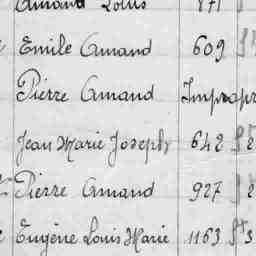 Amand Louis 871
Emile Amand 609
Pierre Amand Impropr
Jean Marie Joseph 642 2
Pierre Amand 927 2
Eugène Louis Marie 1163 3